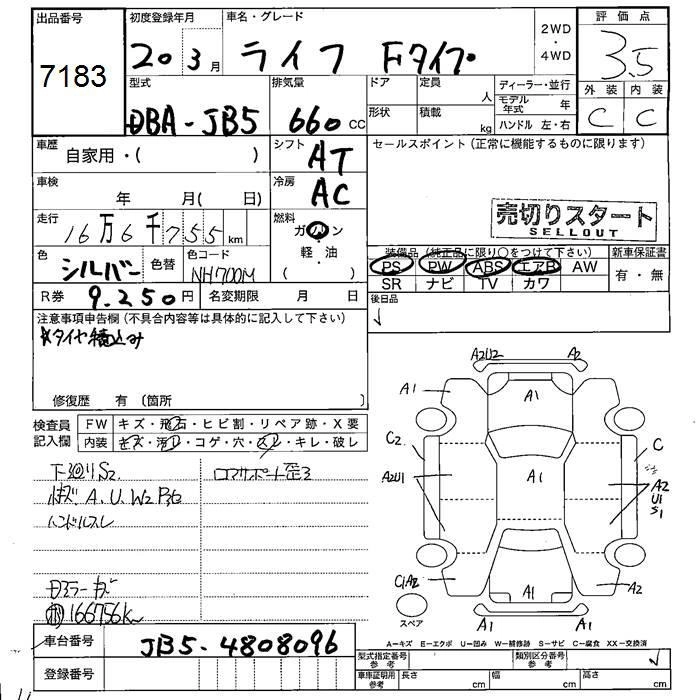 出品番号 初度登録年月 車名・グレード 2WD・4WD 評価点
7183 20 3月 ライフ Fタイプ 3.5
型式 排気量 ドア 定員 人 ディーラー・並行 外装 内装
DBA-JB5 660cc 形状 積載 kg モデル年式 年 C C
ハンドル 左・右
車歴 自家用・( ) シフト AT セールスポイント(正常に機能するものに限ります)
車検 年 月( 日) 冷房 AC
売切りスタート
SELLOUT
走行 16万6千755km 燃料 ガソリン
色 シルバー 色替 色コード NH700M (軽・油)
装備品(純正品に限り○をつけて下さい) 新車保証書
PS PW ABS エアB AW 有・無
SR ナビ TV カワ
R券 9,250円 名変期限 月 日 後日品
注意事項申告欄(不具合内容等は具体的に記入して下さい)
*タイヤ積込み
修復歴 有(箇所
検査員記入欄 FW キズ・飛石・ヒビ割・リペア跡・X要
内装 キズ・汚れ・コゲ・穴・スレ・キレ・破レ
下廻りS2 コアサポート歪3
A.U.W2
ハンドルスレ
ミラーキズ
166756K
A2U2 A2
A1 A1
C2 C
A2U1 A1 A2
U1
S1
C1A2 A1 A2
スペア A1
A-キズ E-エクボ U-凹み W-補修跡 S-サビ C-腐食 XX-交換済
車台番号 JB5-4808096
登録番号
型式指定番号 参考 類別区分番号 参考
車庫証明用 参考 長さ cm 幅 cm 高さ cm